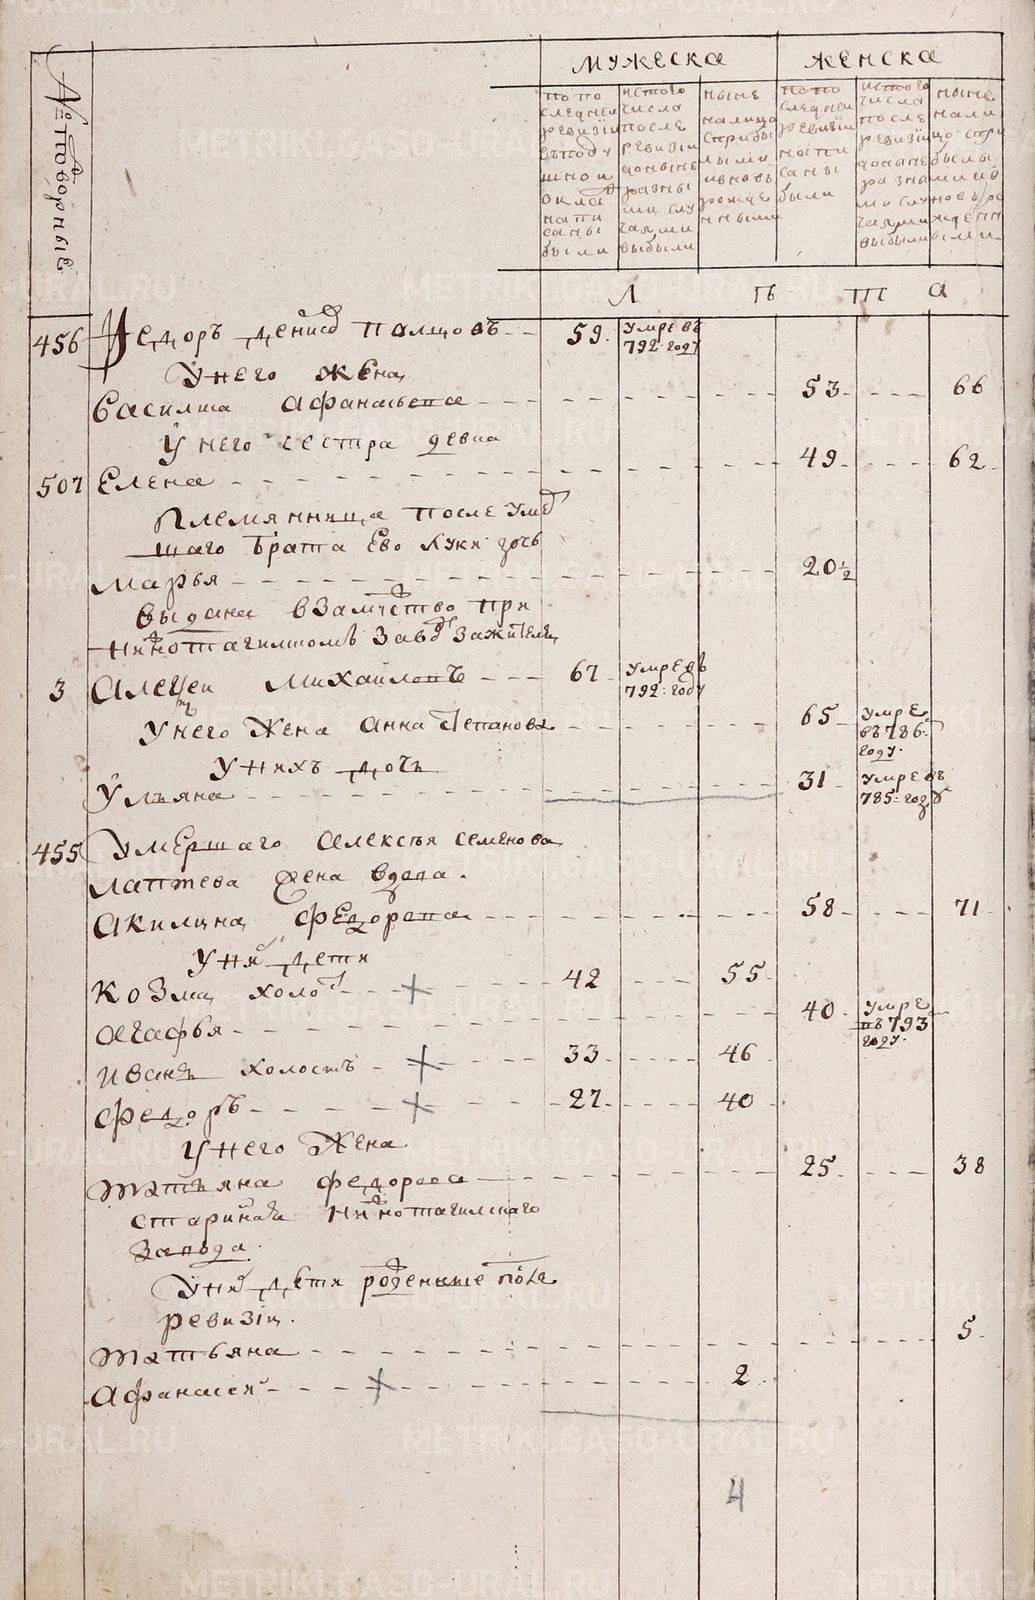 МУЖЕСКА ЖЕНСКА
№ подворные
по последней ревизiи в подушной оклад написаны были
ис того числа после ревизiи доныне разными случаями выбыли
ныне налицо с прибылыми и вновь рожденными
по последней ревизiи написаны были
ис того числа после ревизiи доныне разными случаями выбыли
ныне налицо с прибылыми и вновь рожденными
Л Ѣ Т А
456 Федоръ Денисо Палцовъ 59. умре въ 792: году
У него жена
Василиса Афанасьева 53 66
У него сестра девка
507 Елена 49 62
Племянница после умер
шаго брата ево Луки дочь
Марья 20½
выдана в замужство при
Нижнотагилскомъ заводе за жителя
3 Алексеи Михаиловъ 67 умре въ 792: году
У него жена Анна Степанова 65 умре въ 786: году
У нихъ дочь
Ульяна 31 умре въ 785: году
455 Умершаго Алексея Семенова
Лаптева жена вдова
Акилина Федорова 58 71
У ней дети
Козма холост 42 55
Агафья 40 умре въ 793 году
Иванъ холостъ 33 46
Федоръ 27 40
У него жена
Татьяна Федорова 25 38
старинная Нижнотагилскаго
завода
У них дети рожденные после
ревизiи
Татьяна 5
Афанасей 2
4
METRIKI.GASO-URAL.RU